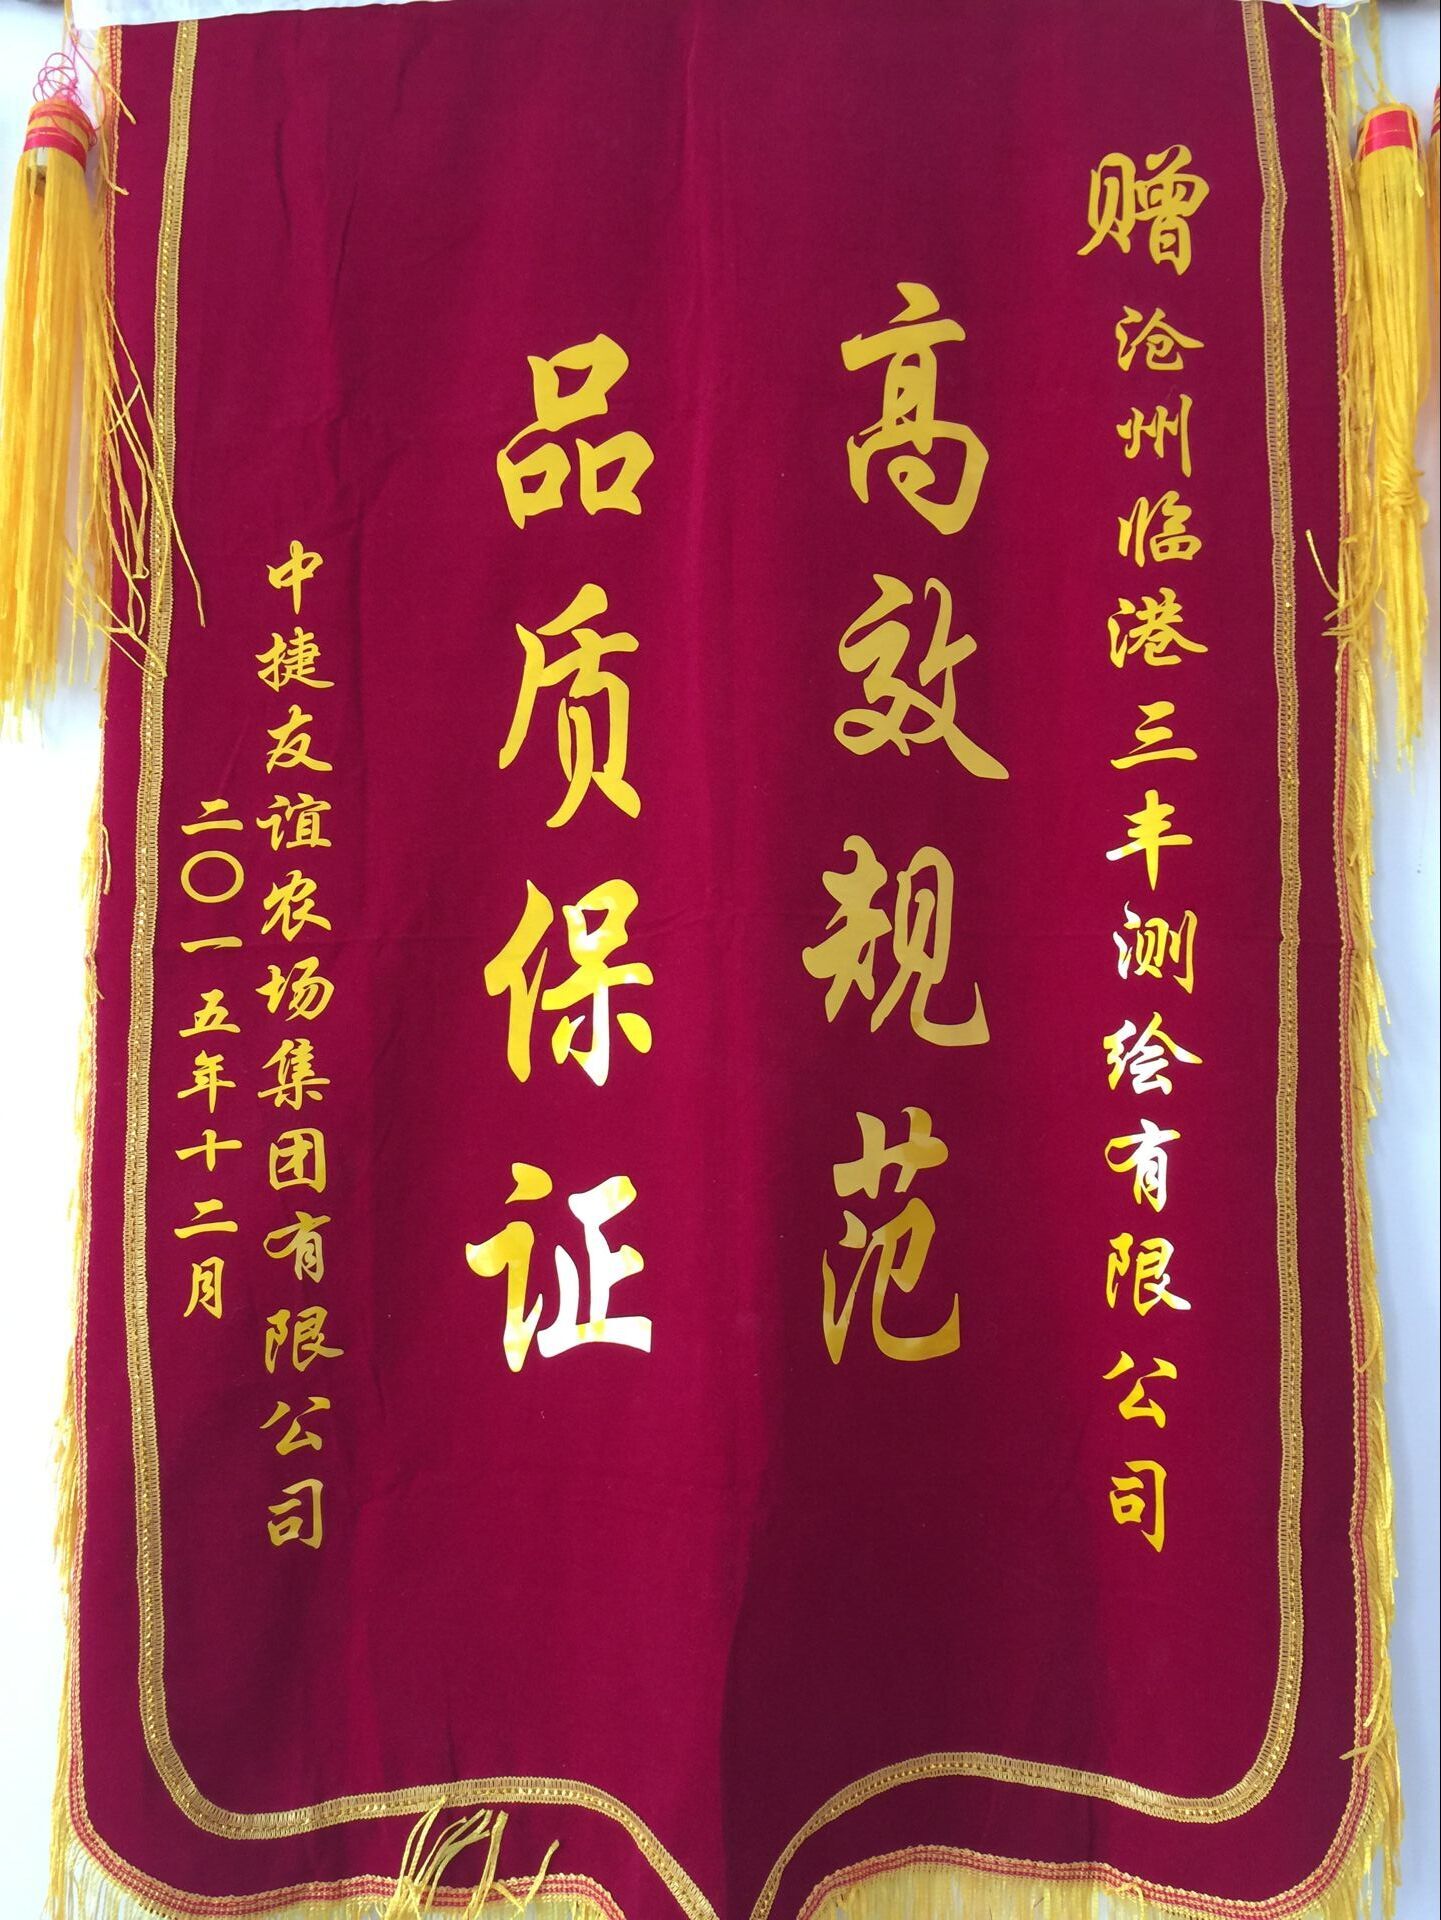 赠沧州临港三丰测绘有限公司
高效规范
品质保证
中捷友谊农场集团有限公司
二〇一五年十二月